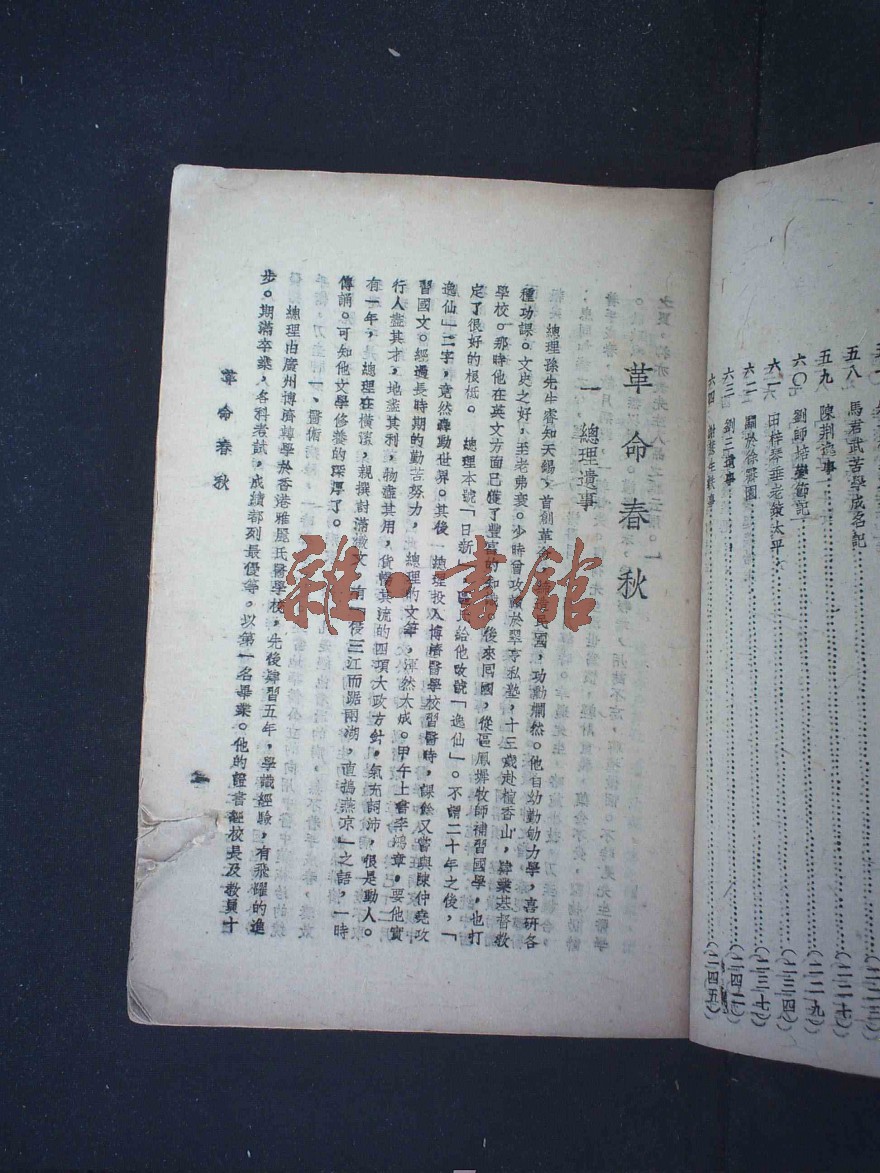 五八 馬君武苦學成名記………(二二七)
五九 陳荆逸事………(二二九)
六〇 劉師培變節記………(二三四)
六一 田梓琴垂老鼓太平………(二三七)
六二 關於徐
六三 劉三遺事………(二四二)
六四 謝 生軼事………(二四五)
革命春秋
一 總理遺事
總理孫先生睿知天錫,首創革命, 民國,功勳爛然。他自幼勤勉力學,喜研各
種功課。文史之好,至老弗衰。少時曾攻讀於翠亨私塾,十三歲赴檀香山,肄業基督教
學校。那時他在英文方面已獲了豐富的知識。後來囘國,從區鳳墀牧師補習國學,也打
定了很好的根柢。 總理本號「日新」 區氏給他改號「逸仙」。不謂二十年之後,「
逸仙」二字,竟然轟動世界。其後 總理投入博濟醫學校習醫時,課餘又嘗與陳仲堯攻
習國文。經過長時期的勤苦努力, 總理的文筆,渾然大成。甲午上書李鴻章,要他實
行人盡其才,地盡其利,物盡其用,貨暢其流的四項大政方針,氣充詞沛,很是動人。
有一年, 總理在橫濱,親撰討滿檄文,有「 三江而踞兩湖,直搗燕凉」之語,一時
傳誦。可知他文學修養的深厚了。
總理由廣州博濟轉學於香港雅麗氏醫學校,先後肄習五年,學識經驗,有飛躍的進
步。期滿卒業,各科考試,成績都列最優等。以第一名畢業。他的證書經校長及教員十
革命春秋
一
雜·書館